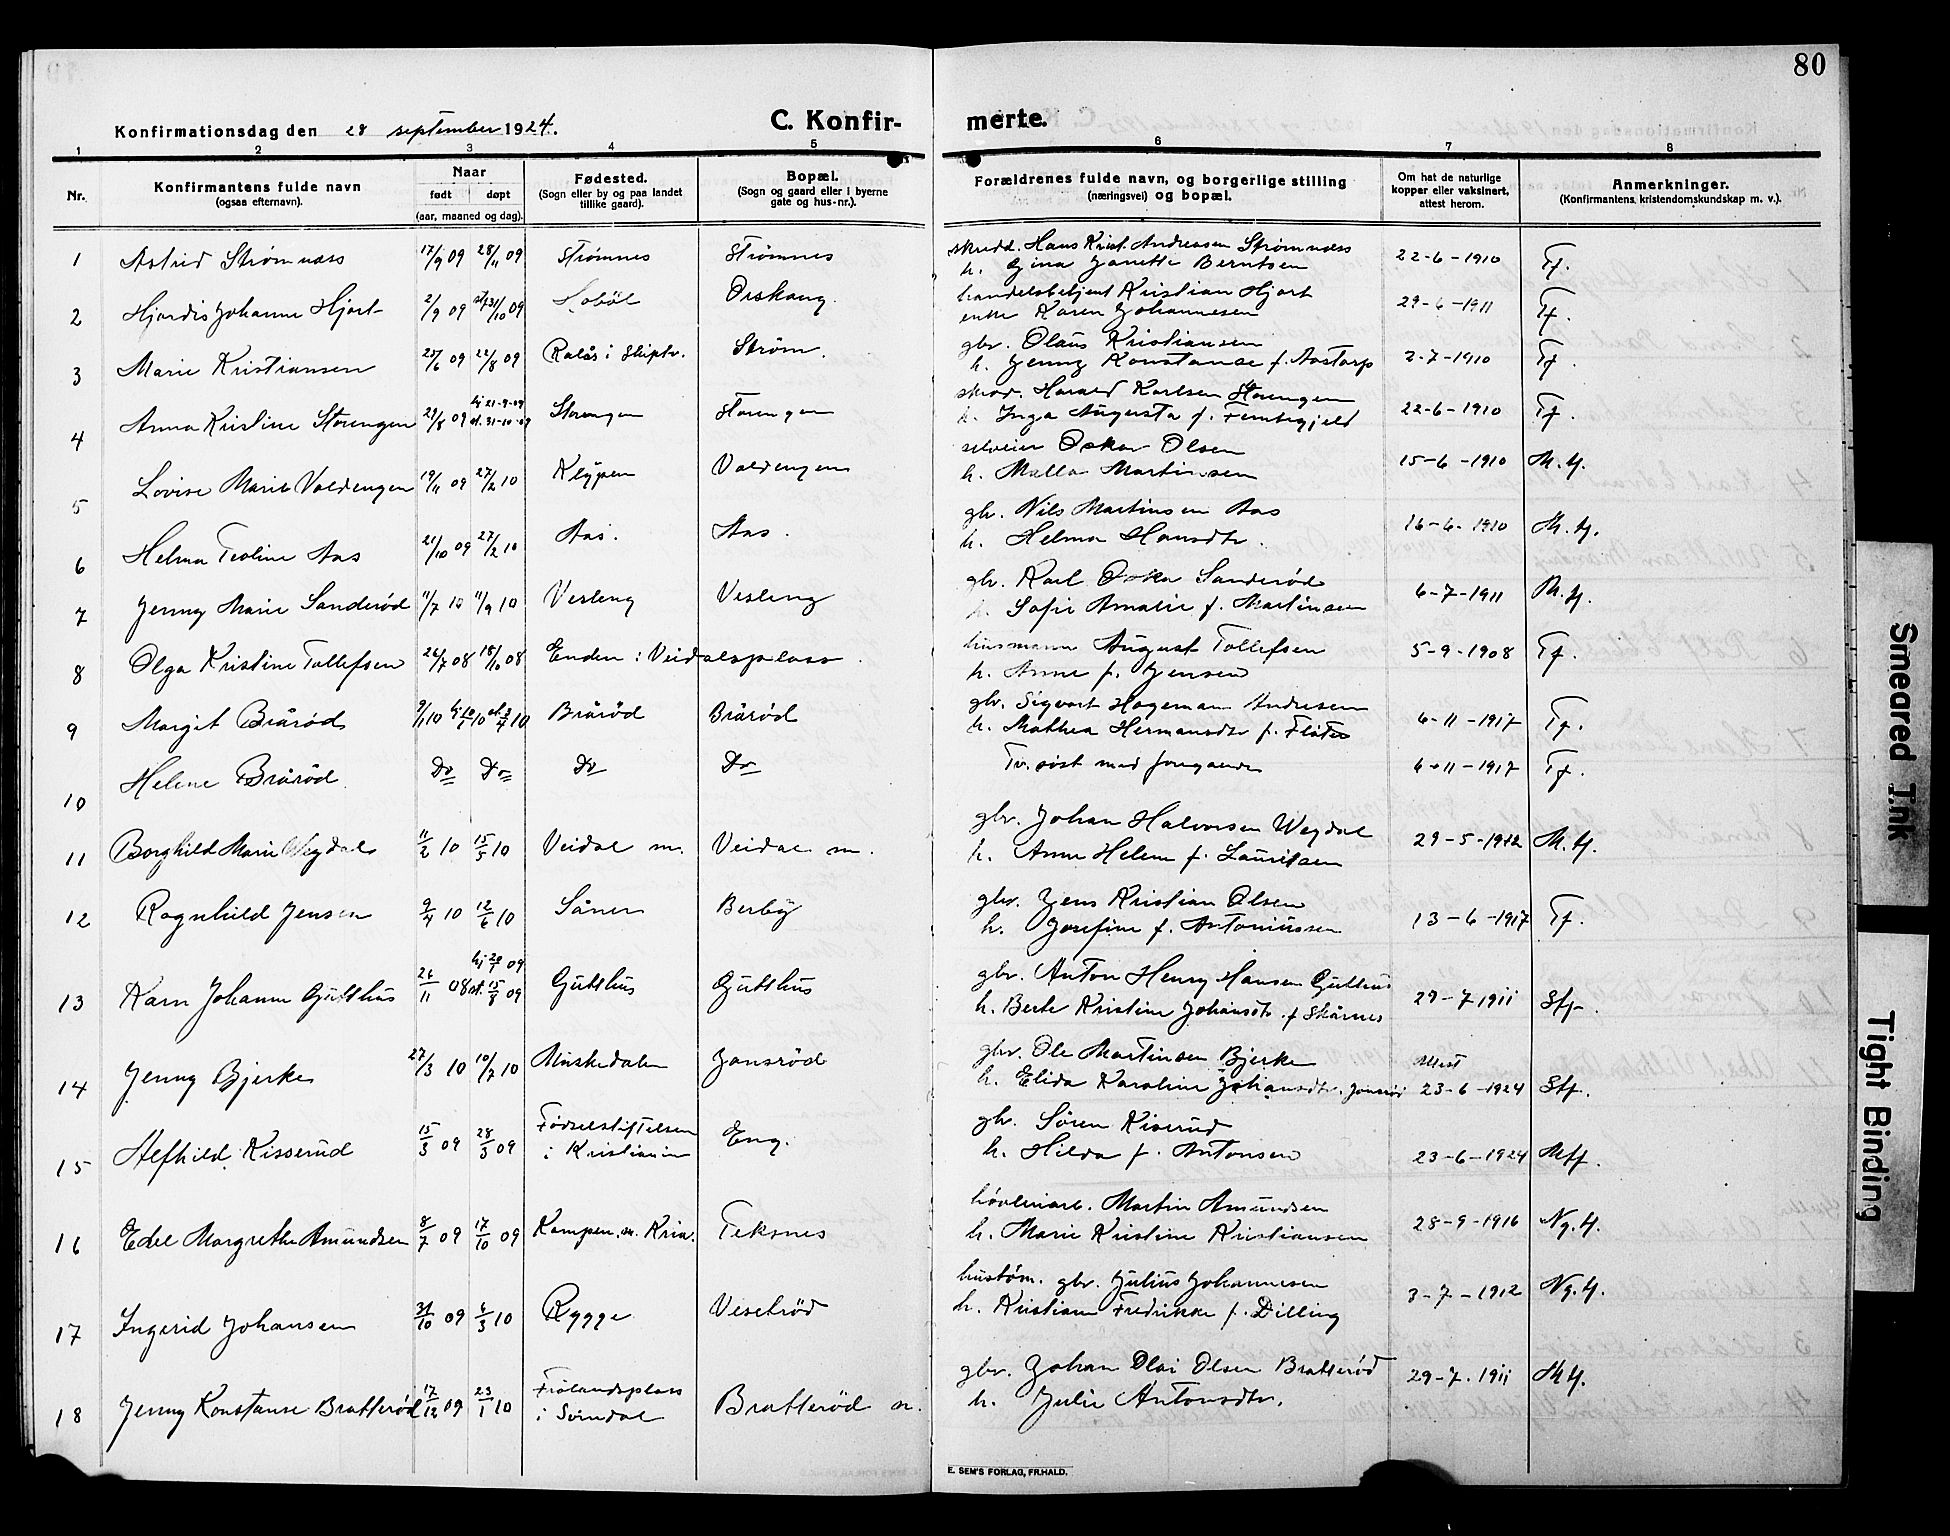 80
Konfirmationsdag den 28 september 1924.
C. Konfir-
merte.
1 2 3 4 5 6 7 8
Nr.
Konfirmantens fulde navn
(ogsaa efternavn).
Naar
født døpt
(aar, maaned og dag).
Fødested.
(Sogn eller by og paa landet
tillike gaard).
Bopæl.
(Sogn og gaard eller i byerne
gate og hus-nr.).
Forældrenes fulde navn, og borgerlige stilling
(næringsvei) og bopæl.
Om hat de naturlige
kopper eller vaksinert,
attest herom.
Anmerkninger.
(Konfirmantens kristendomskundskap m. v.).
1 Astrid Strømnæss 17/9 09 28/11 09 Strømnes Strømnes
Hans Krist. Andreasen Strømnæss
h. Gina Janette Berntsen
22-6-1910 Tf.
2 Hjørdis Johanne Hjort 2/9 09 31/10 09 Orskaug
handelsbetjent Kristian Hjort
enke Karen Johannesen
29-6-1911 Tf.
3 Marie Kristiansen 25/6 09 22/8 09 Strøm.
gbr. Olaus Kristiansen
h. Jenny Konstanse f. Aastorp
2-7-1910 Tf.
4 Anna Kristine Storengen 29/8 09 hj 21-9-09
st. 31-10-09
Storengen Storengen
Harald Karlsen Storengen
h. Inga Augusta f.
22-6-1910 Tf.
5 Lovise Marie Voldengen 19/11 09 27/2 10 Klypen Voldengen
selveier Oskar Olsen
h. Malla Martinsen
15-6-1910 M.H.
6 Helma Teoline Aas 21/10 09 27/2 10 Aas. Aas.
gbr. Nils Martinsen Aas
h. Helma Hansdtr.
16-6-1910 M.H.
7 Jenny Marie Sanderød 11/7 10 11/9 10 Vesleng Vesleng
gbr. Karl Oskar Sanderød
h. Sofie Amalie f. Martinsen
6-7-1911 M.H.
8 Olga Kristine Tollefsen 26/7 08 18/10 08 Enden: Veidalsplass.
husmann August Tollefsen
h. Anne f. Jensen
5-9-1908 Tf.
9 Margit Brårød 9/1 10 Brårød Brårød
gbr. Sigvart Hageman Andresen
h. Mathea Hermansdtr f. Fløtes
6-11-1917 Tf.
10 Helene Brårød. Do Do Do Do
Tv. søst med foregaaende
6-11-1917 Tf.
11 Borghild Marie Wegdal 11/2 10 15/5 10 Veidal m. Veidal m.
gbr. Johan Halvorsen Wegdal
h. Anne Helene f. Lauritsen
29-5-1912 M.H.
12 Ragnhild Jensen 9/4 10 12/6 10 Såner Berby
gbr. Jens Kristian Olsen
h. Josefine f. Antoniussen
13-6-1917 Tf.
13 Karn Johanne Gutthus 26/11 08 hj 20/1 09
st. 15/8 09
Gutthus Gutthus
gbr. Anton Henry Hansen Gutthus
h. Berte Kristine Johansdtr. f Skårnes
29-7 1911 Stf.
14 Jenny Bjerke 27/3 10 10/7 10 Muskedalen Jonsrød
gbr. Ole Martinsen Bjerke
h. Elida Karoline Johansdtr. Jonsrød
Attest
23-6-1924 Stf.
15 Alfhild Kisserud 15/3 09 28/3 09 Fødselstiftelsen
i Kristiania
Eng.
gbr. Sören Kiserud
h. Hilda f. Antonsen
23-6-1924 Mtf.
16 Edel Margrethe Amundsen 8/7 09 17/10 09 Kampen. m. Kria. Teksnes
høvleriarb. Martin Amundsen
h. Marie Kristine Kristiansen
28-9-1916 Ng.H.
17 Ingerid Johansen 31/10 09 6/3 10 Rygge Vesetrød
hustøm. gbr. Julius Johannesen
h. Kristiane Fredrikke f. Dilling
3-7-1912 Ng.H.
18 Jenny Konstanse Bratterød 17/12 09 23/1 10 Frølandsplass
i Sørndal
Bratterød n.
gbr. Johan Olai Olsen Bratterød
h. Julie Antonsdtr.
29-7-1911 M.H.
E. SEM'S FORLAG, FR.HALD.
Smeared Ink
Tight Binding